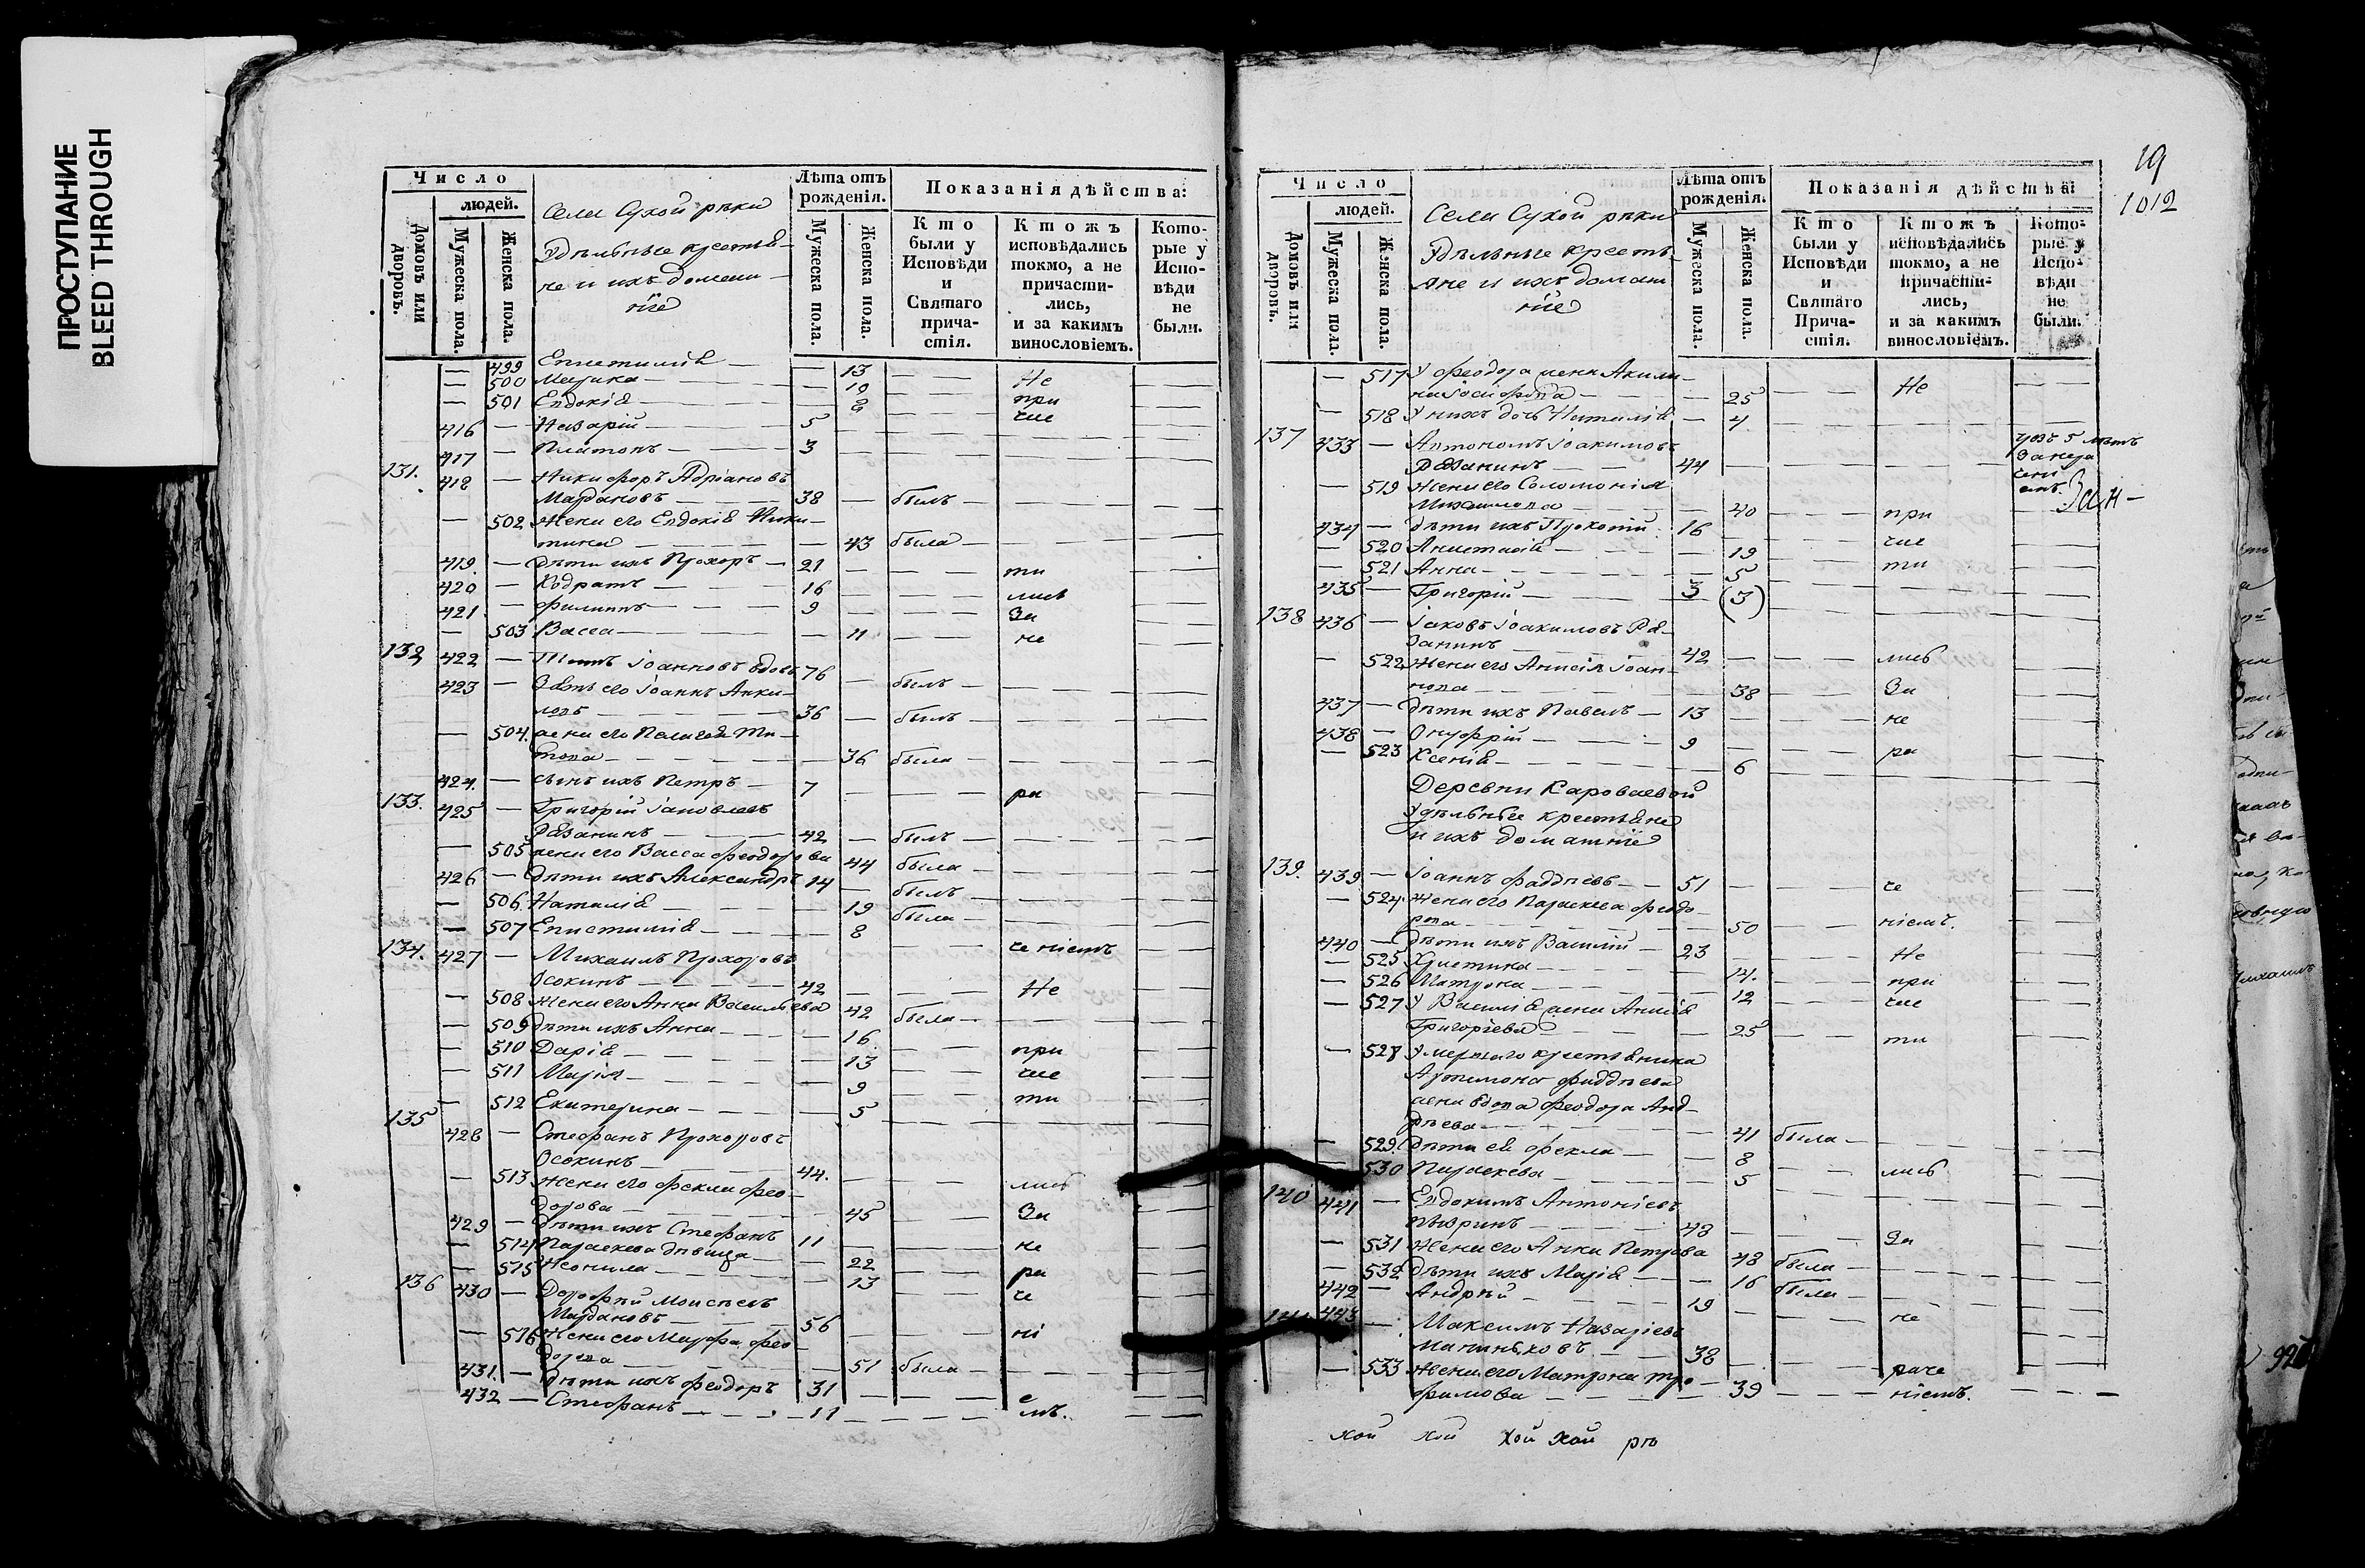 ПРОСТУПАНИЕ
BLEED THROUGH
Число
людей.
Домовъ или дворовъ.
Мужеска пола.
Женска пола.
Села Сухой рѣки
Удѣльные крестья-
не и ихъ домаш-
ніе
Лѣта отъ рожденія.
Мужеска пола.
Женска пола.
Показанія дѣйства:
Кто были у Исповѣди и Святаго причастія.
Кто жъ исповѣдались токмо, а не причастились, и за какимъ винословіемъ.
Которые у Исповѣди не были.
— 499 Епистимія — — 13 — — Не — —
— 500 Марика — — 10 — — при — —
— 501 Евдокія — — 8 — — чае — —
416 — Назарій — 5 — — —
417 — Платонъ — 3 — — —
131. 418 — Никифоръ Адріановъ
Маздановъ — 38 — былъ — —
— 502 Жена его Евдокія Ники-
тина — — 43 была — —
419. — Дѣти ихъ Прохоръ — 21 — — ти — —
420 — Кодратъ — 16 — — лись — —
421. — Филиппъ — 9 — — За — —
— 503 Васса — — 11 — — не — —
132 422 — Титъ Іоанновъ вдовъ 76 — былъ — —
423 — Зять его Іоаннъ Анки-
ловъ — 36 — былъ — —
— 504. жена его Пелагея Ти-
това — — 36 была — —
424. — сынъ ихъ Петръ — 7 — — ра — —
133. 425 — Григорій Іаковлевъ
Рязанинъ — 42 — былъ — —
— 505 жена его Васса Феодорова 44 была — —
426 — Дѣти ихъ Александръ 14 — былъ — —
— 506. Наталія — — 19 была — —
— 507 Епистимія — — 8
134. 427 — Михаилъ Прохоровъ — — ченіемъ — —
Осокинъ — 42 — — Не — —
— 508 Жена его Анна Васильева 42 была — —
— 509 Дѣти ихъ Анна — — 16
— 510 Дарія — — 13 — — при — —
— 511 Марія — — 9 — — чае — —
— 512 Екатерина — — 5 — — ти — —
135 428 — Стефанъ Прохоровъ
Осокинъ — 44.
— 513 Жена его Фекла Фео- — — лись
дорова — — 45 — — За — —
429 — Дѣти ихъ Стефанъ 11 — — не — —
— 514 Параскева дѣвица — — 22 — — ра — —
— 515 Неонила — — 13 — — че — —
136 430 — Дорофѣй Моисеевъ
Маздановъ — 56 — — ні — —
— 516 Жена его Марфа Фео-
дорова — — 51 была — —
431. — Дѣти ихъ Феодоръ 31 — — е
432 — Стефанъ — 11 — — мъ. — —
19
1012
Число
людей.
Домовъ или дворовъ.
Мужеска пола.
Женска пола.
Села Сухой рѣки
Удѣльные кресть-
яне и ихъ домаш
ніе
Лѣта отъ рожденія.
Мужеска пола.
Женска пола.
Показанія дѣйства:
Кто были у Исповѣди и Святаго Причастія.
Кто жъ исповѣдались токмо, а не причастились, и за какимъ винословіемъ.
Которые у Исповѣди не были.
— 517 У Феодора жена Акили-
на Іосифова — — 25 — — Не — —
— 518 У нихъ дочь Наталія — 4
137 433 — Автономъ Іоакимовъ
Рязанинъ — 44
— 519 Жена его Соломонія
Михаилова — — 40 — — при
434 — Дѣти ихъ Прокопій 16 — — чае
— 520 Анистасія — — 19 — — ти
— 521 Анна — — 5
435 — Григорій — 3 (3)
138 436 — Іаковъ Іоакимовъ Ря-
занинъ — 42 — — лись
— 522 Жена его Анисія Іоан-
нова — — 38 — — За
437 — Дѣти ихъ Павелъ — 13 — — не
438 — Онуфрій — 9 — — ра
— 523 Ксенія — — 6
Деревни Кароваевой
Удѣльные крестьяне
и ихъ домашніе
139. 439 — Іоаннъ Фаддѣевъ — 51 — — че
— 524. Жена его Параскева Феодо-
рова — — 50 — — ніемъ.
440 — Дѣти ихъ Василій — 23 — — Не
— 525 Христина — — 14. — — при
— 526 Матрона — — 12 — — чае
— 527 У Василія жена Анисія
Григоріева — — 25 — — ти
— 528 Умершаго крестьянина
Артимона Фаддѣева
жена вдова Феодора Анд-
рѣева — — 41 была —
— 529. Дѣти ея Фекла — — 8
— 530 Параскева — — 5 — — лись
140 441 — Евдокимъ Антоніевъ
— 48 — — За
— 531 Жена его Анна Петрова 48 была —
— 532 Дѣти ихъ Марія — — 16 была
442 — Андрѣй — 19 — — не
443 — Максимъ Назаріевъ
Маниньковъ — 38 — — раче
— 533 Жена его Матрона Тро-
фимова — — 39 — — ніемъ. — —
хой хой хой хой рѣ